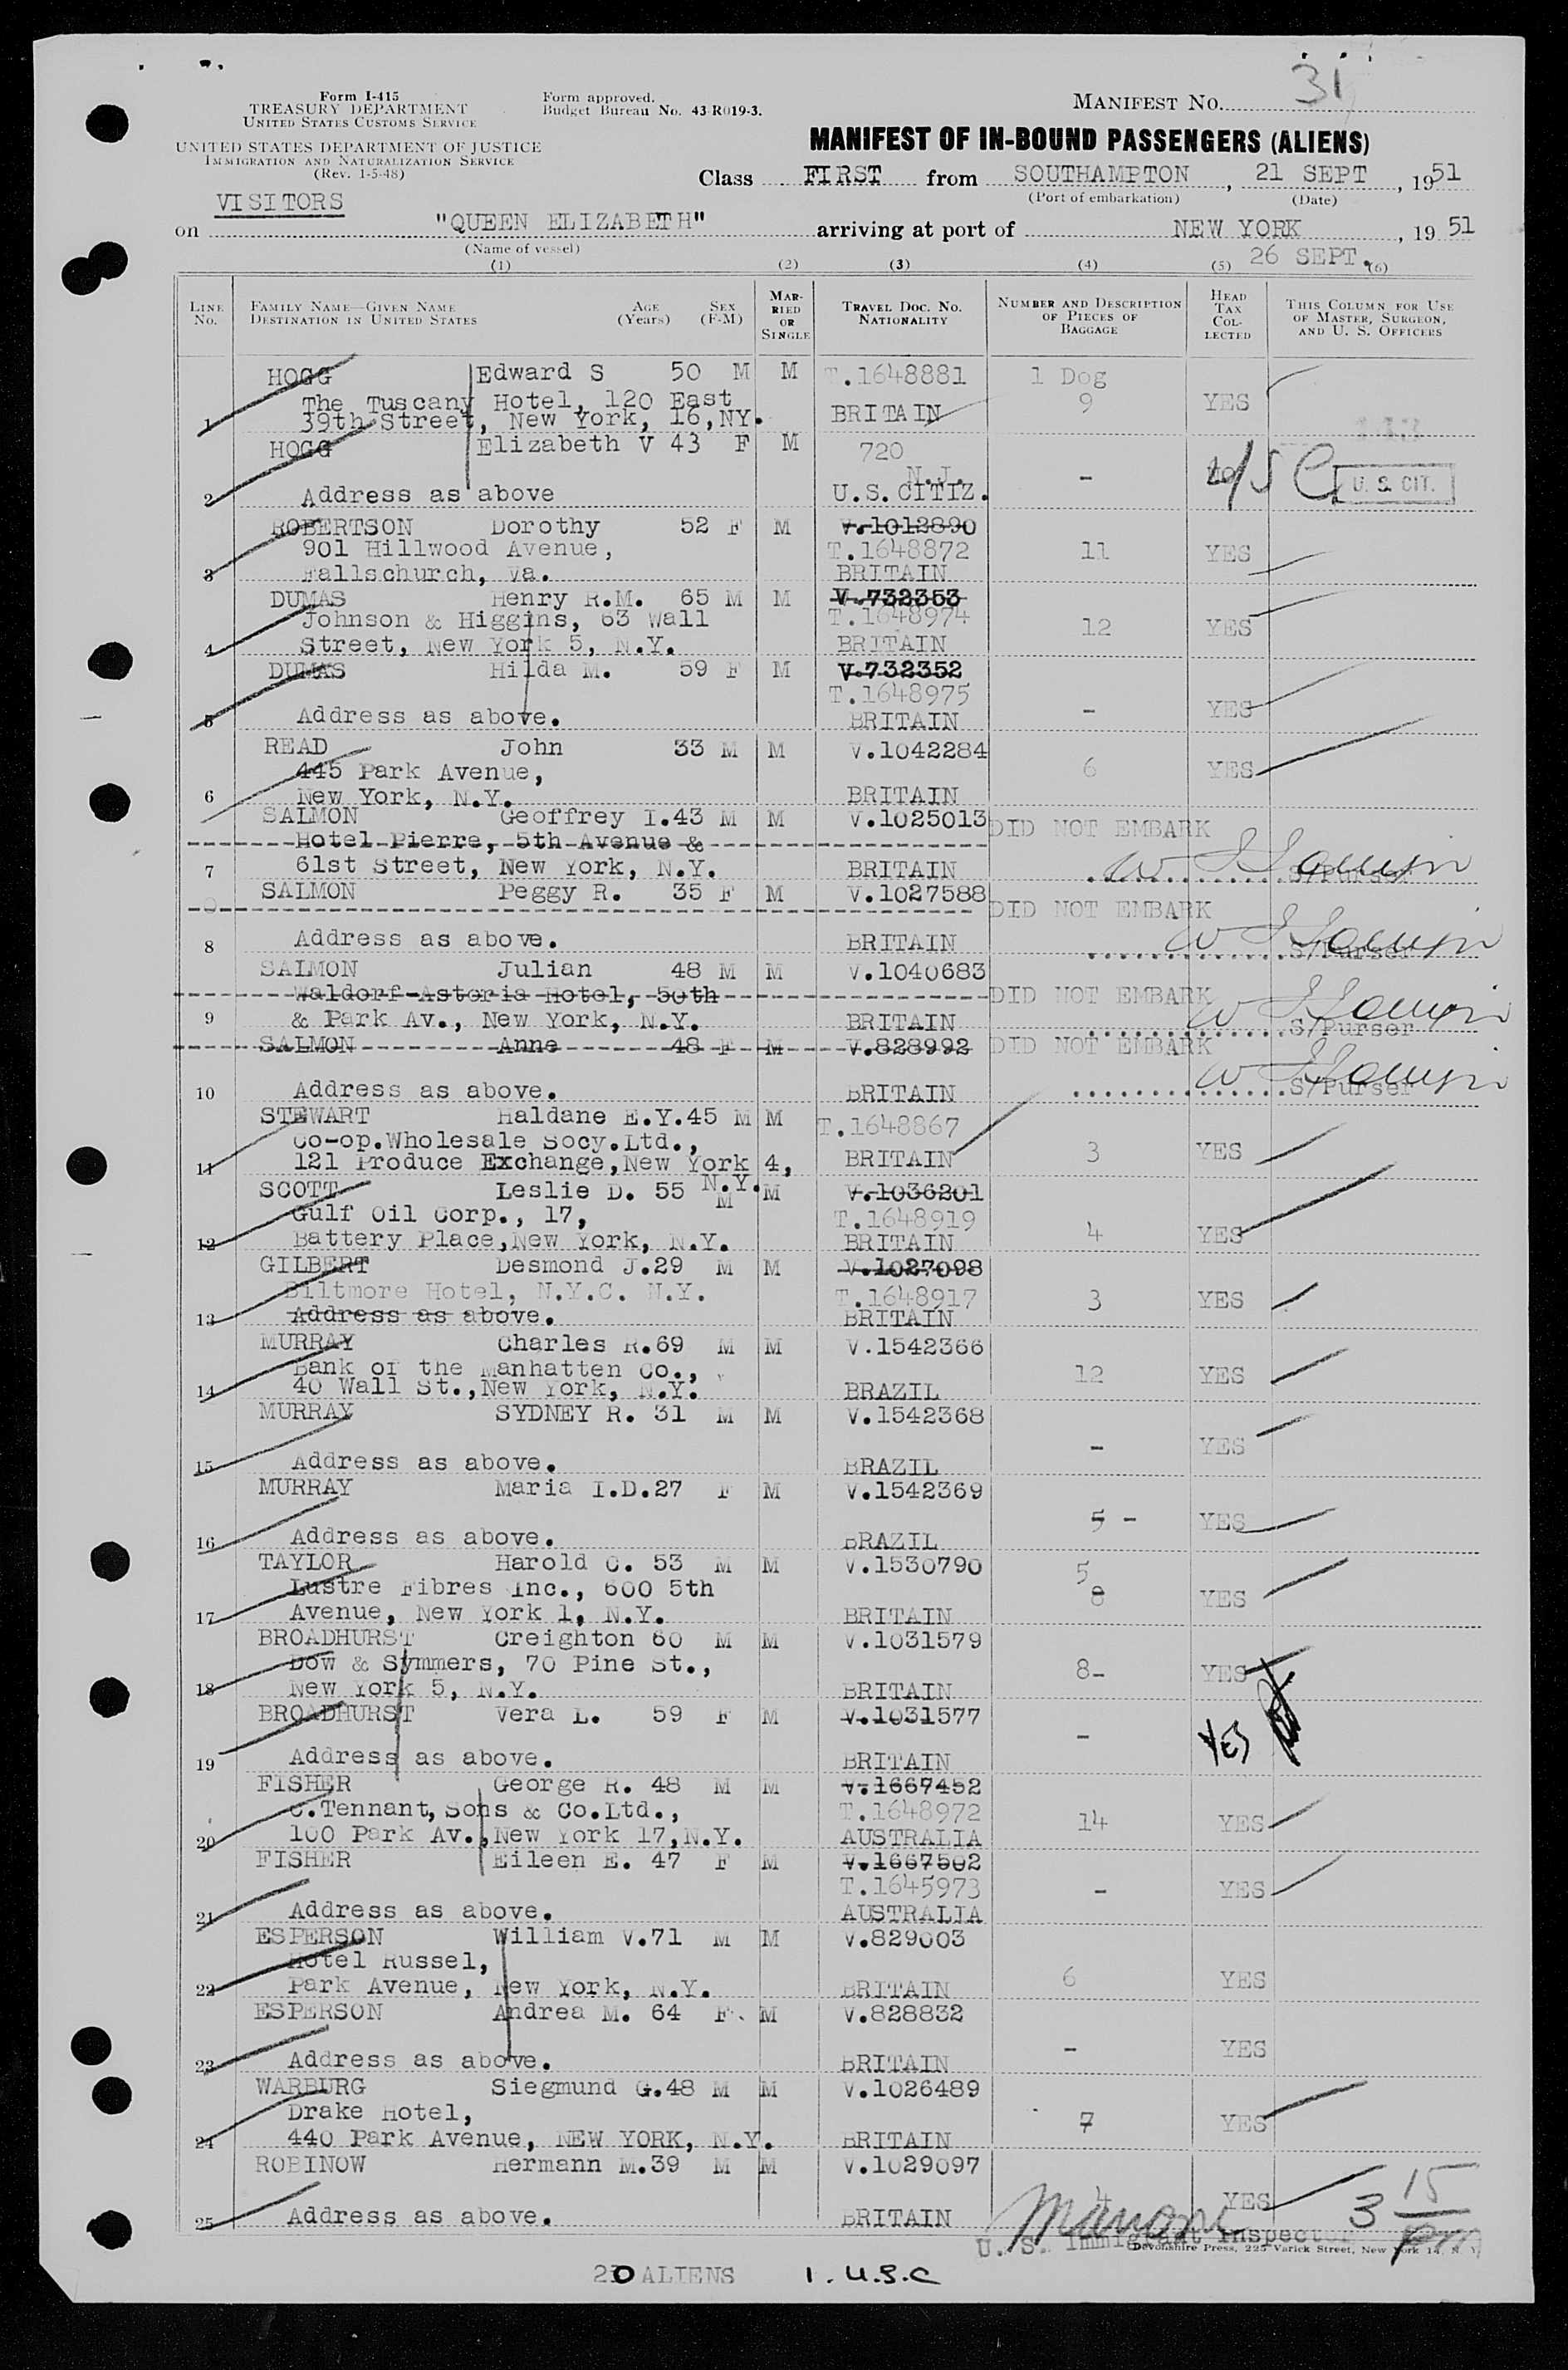 31
Form I-415
TREASURY DEPARTMENT
UNITED STATES CUSTOMS SERVICE
Form approved.
Budget Bureau No. 43-R019-3.
MANIFEST NO.
UNITED STATES DEPARTMENT OF JUSTICE
IMMIGRATION AND NATURALIZATION SERVICE
(Rev. 1-5-48)
MANIFEST OF IN-BOUND PASSENGERS (ALIENS)
Class FIRST from SOUTHAMPTON, 21 SEPT, 1951
(Port of embarkation) (Date)
VISITORS
on "QUEEN ELIZABETH" arriving at port of NEW YORK, 19 51
(Name of vessel)
26 SEPT.
(1) (2) (3) (4) (5) (6)
LINE No. FAMILY NAME—GIVEN NAME DESTINATION IN UNITED STATES AGE (Years) SEX (F-M) MARRIED OR SINGLE TRAVEL DOC. NO. NATIONALITY NUMBER AND DESCRIPTION OF PIECES OF BAGGAGE HEAD TAX COLLECTED THIS COLUMN FOR USE OF MASTER, SURGEON, AND U. S. OFFICERS
HOGG Edward S 50 M M T.1648881 1 Dog
The Tuscany Hotel, 120 East
1 39th Street, New York, 16,NY. BRITAIN 9 YES
HOGG Elizabeth V 43 F M 720
N.J.
2 Address as above U.S. CITIZ. - USC U. S. CIT.
ROBERTSON Dorothy 52 F M V.1012890
901 Hillwood Avenue, T.1648872 11 YES
3 Fallschurch, Va. BRITAIN
DUMAS Henry R.M. 65 M M V.732353
Johnson & Higgins, 63 Wall T.1648974 12 YES
4 Street, New York 5, N.Y. BRITAIN
DUMAS Hilda M. 59 F M V.732352
T.1648975
5 Address as above. BRITAIN - YES
READ John 33 M M V.1042284
445 Park Avenue, 6 YES
6 New York, N.Y. BRITAIN
SALMON Geoffrey I.43 M M V.1025013 DID NOT EMBARK
Hotel Pierre, 5th Avenue &
7 61st Street, New York, N.Y. BRITAIN S/Purser
SALMON Peggy R. 35 F M V.1027588 DID NOT EMBARK
8 Address as above. BRITAIN S/Purser
SALMON Julian 48 M M V.1040683
Waldorf-Astoria Hotel, 50th DID NOT EMBARK
9 & Park Av., New York, N.Y. BRITAIN S/Purser
SALMON Anne 48 F M V.828992 DID NOT EMBARK
10 Address as above. BRITAIN S/Purser
STEWART Haldane E.Y.45 M M T.1648867
Co-op.Wholesale Socy.Ltd.,
11 121 Produce Exchange,New York 4, N.Y. BRITAIN 3 YES
SCOTT Leslie D. 55 M M V.1036201
Gulf Oil Corp., 17, T.1648919
12 Battery Place,New York, N.Y. BRITAIN 4 YES
GILBERT Desmond J.29 M M V.1027098
Biltmore Hotel, N.Y.C. N.Y. T.1648917 3 YES
13 Address as above. BRITAIN
MURRAY Charles R.69 M M V.1542366
Bank of the Manhatten Co., 12 YES
14 40 Wall St.,New York, N.Y. BRAZIL
MURRAY SYDNEY R. 31 M M V.1542368
- YES
15 Address as above. BRAZIL
MURRAY Maria I.D.27 F M V.1542369
5 - YES
16 Address as above. BRAZIL
TAYLOR Harold C. 53 M M V.1530790 5
Lustre Fibres Inc., 600 5th 8 YES
17 Avenue, New York 1, N.Y. BRITAIN
BROADHURST Creighton 60 M M V.1031579
Dow & Symmers, 70 Pine St., 8- YES
18 New York 5, N.Y. BRITAIN
BROADHURST Vera L. 59 F M V.1031577
- YES
19 Address as above. BRITAIN
FISHER George R. 48 M M V.1667452
C.Tennant, Sons & Co.Ltd., T.1648972 14 YES
20 100 Park Av.,New York 17,N.Y. AUSTRALIA
FISHER Eileen E. 47 F M V.1667502
T.1645973 - YES
21 Address as above. AUSTRALIA
ESPERSON William V.71 M M V.829003
Hotel Russel, 6 YES
22 Park Avenue, New York, N.Y. BRITAIN
ESPERSON Andrea M. 64 F M V.828832
- YES
23 Address as above. BRITAIN
WARBURG Siegmund G.48 M M V.1026489
Drake Hotel, 7 YES
24 440 Park Avenue, NEW YORK, N.Y. BRITAIN
ROBINOW Hermann M.39 M M V.1029097
4 YES 3 15 pm
25 Address as above. BRITAIN
U. S. Immigrant Inspector
Devonshire Press, 225 Varick Street, New York 14, N. Y.
20 ALIENS 1. U.S.C